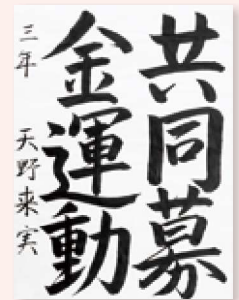 共同募
金運動
三年 天野来実